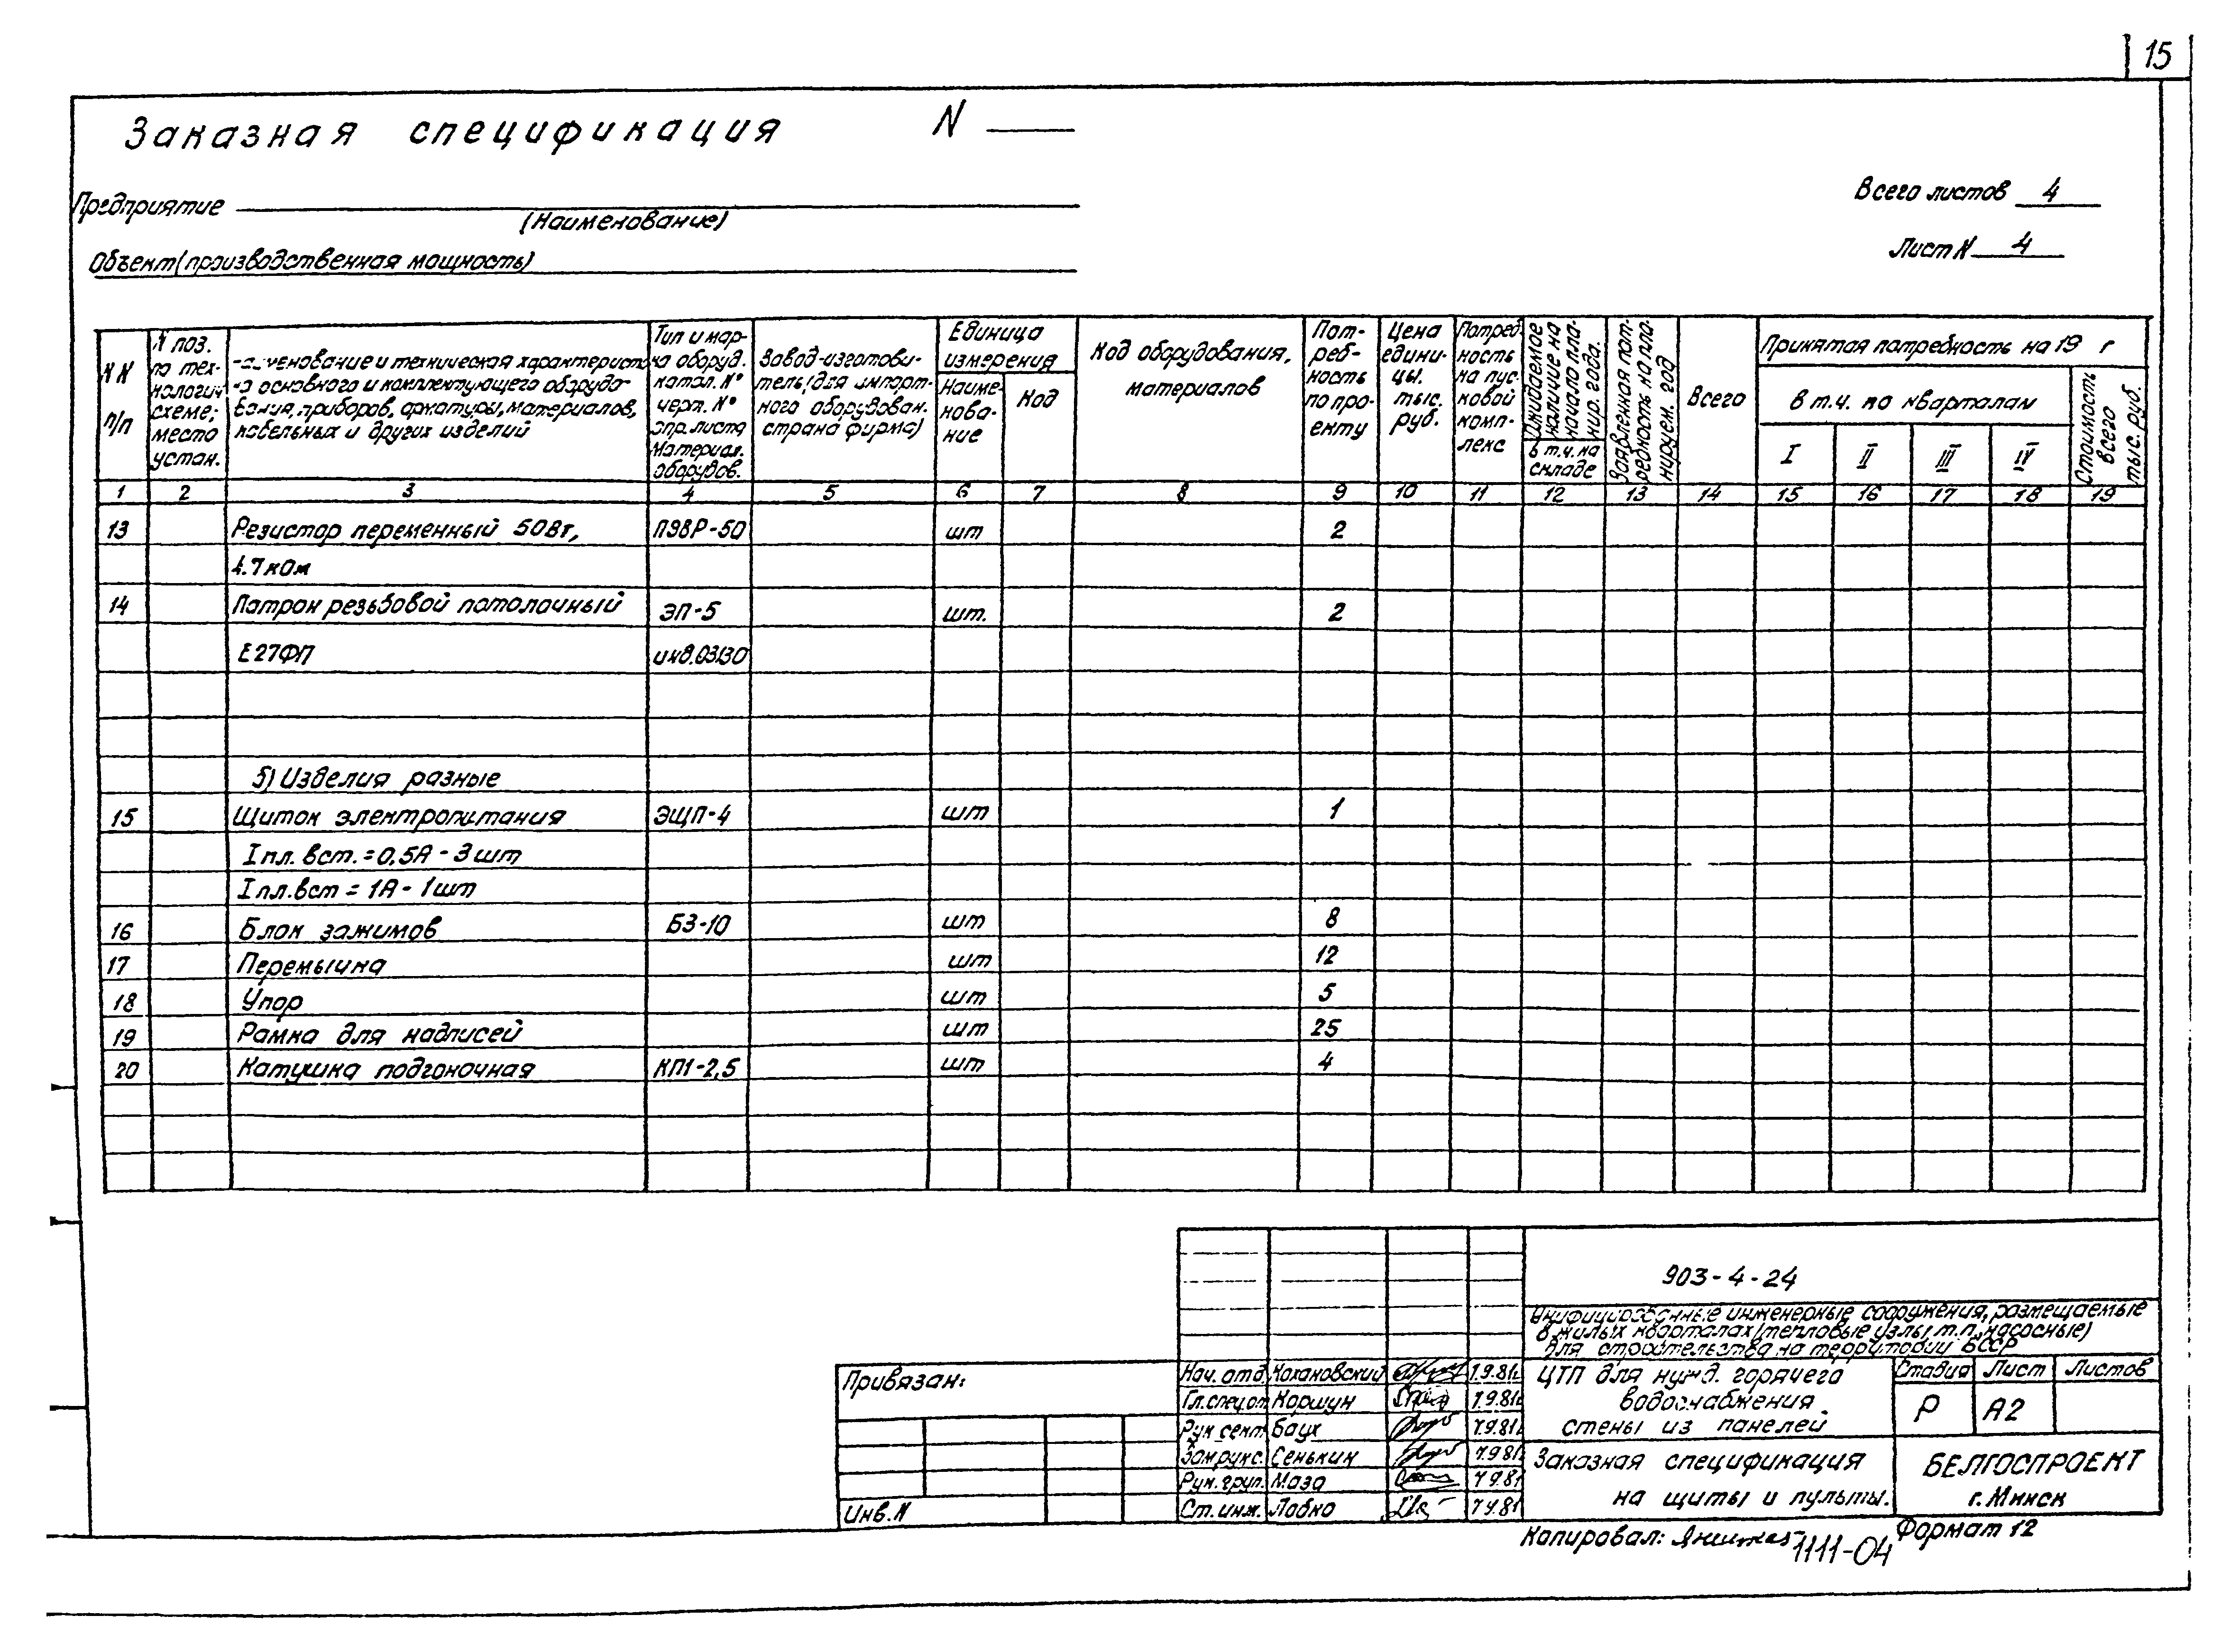 15
Заказная спецификация N
Предприятие
(Наименование)
Объект (производственная мощность)
Всего листов 4
Лист N 4
NN п/п
N поз. по технологич схеме; место устан.
основного и комплектующего оборудования, приборов, арматуры, материалов, кабельных и других изделий
Тип и марка оборуд. катал. N° черт. N° опр. листа Материал. оборудов.
Завод-изготовитель (для импортного оборудован. страна фирма)
Единица измерения
Наименование
Код
Код оборудования, материалов
Потребность по проекту
Цена единицы. тыс. руб.
Потребность на пусковой комплекс
Ожидаемое наличие на начало планир. года.
в т.ч. на складе
Заявленная потребность на планируем. год
Всего
Принятая потребность на 19 г
в т.ч. по кварталам
I II III IV
Стоимость всего тыс. руб.
1 2 3 4 5 6 7 8 9 10 11 12 13 14 15 16 17 18 19
13 Резистор переменный 50Вт, ПЭВР-50 шт 2
4.7 кОм
14 Патрон резьбовой потолочный ЭП-5 шт. 2
Е27ФП инв.03130
5) Изделия разные
15 Щиток электропитания ЭЩП-4 шт 1
I пл. вст. = 0,5А - 3 шт
I пл. вст = 1А - 1 шт
16 Блок зажимов БЗ-10 шт 8
17 Перемычка шт 12
18 Упор шт 5
19 Рамка для надписей шт 25
20 Катушка подгоночная КП1-2,5 шт 4
903-4-24
Унифицированные инженерные сооружения, размещаемые
в жилых кварталах (тепловые узлы, т.п., насосные)
для строительства на территории БССР
Привязан:
Инв. N
Нач. отд. Кохановский 7.9.81г.
Гл. спец. от Коршун 7.9.81г
Рук сект Баух 7.9.81г.
Зам рук с. Сенькин 7.9.81г.
Рук. груп. Маза 7 9.81
Ст. инж. Лобко 7.9.81
ЦТП для нужд. горячего
водоснабжения
стены из панелей
Стадия Лист Листов
Р А2
Заказная спецификация
на щиты и пульты.
БЕЛГОСПРОЕКТ
г. Минск
Копировал:
1111-04
Формат 12